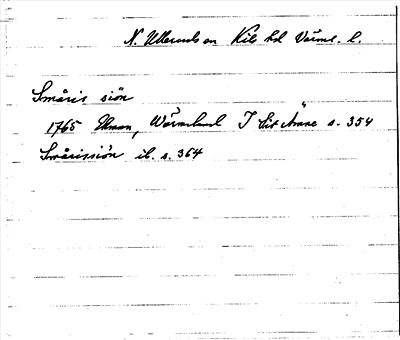 N. Ullerud sn Kil hd Värml. l.
Småris siön
1765 Ekman, Wärmland I sit Ämne s. 354
Smårissiön ib. s. 364